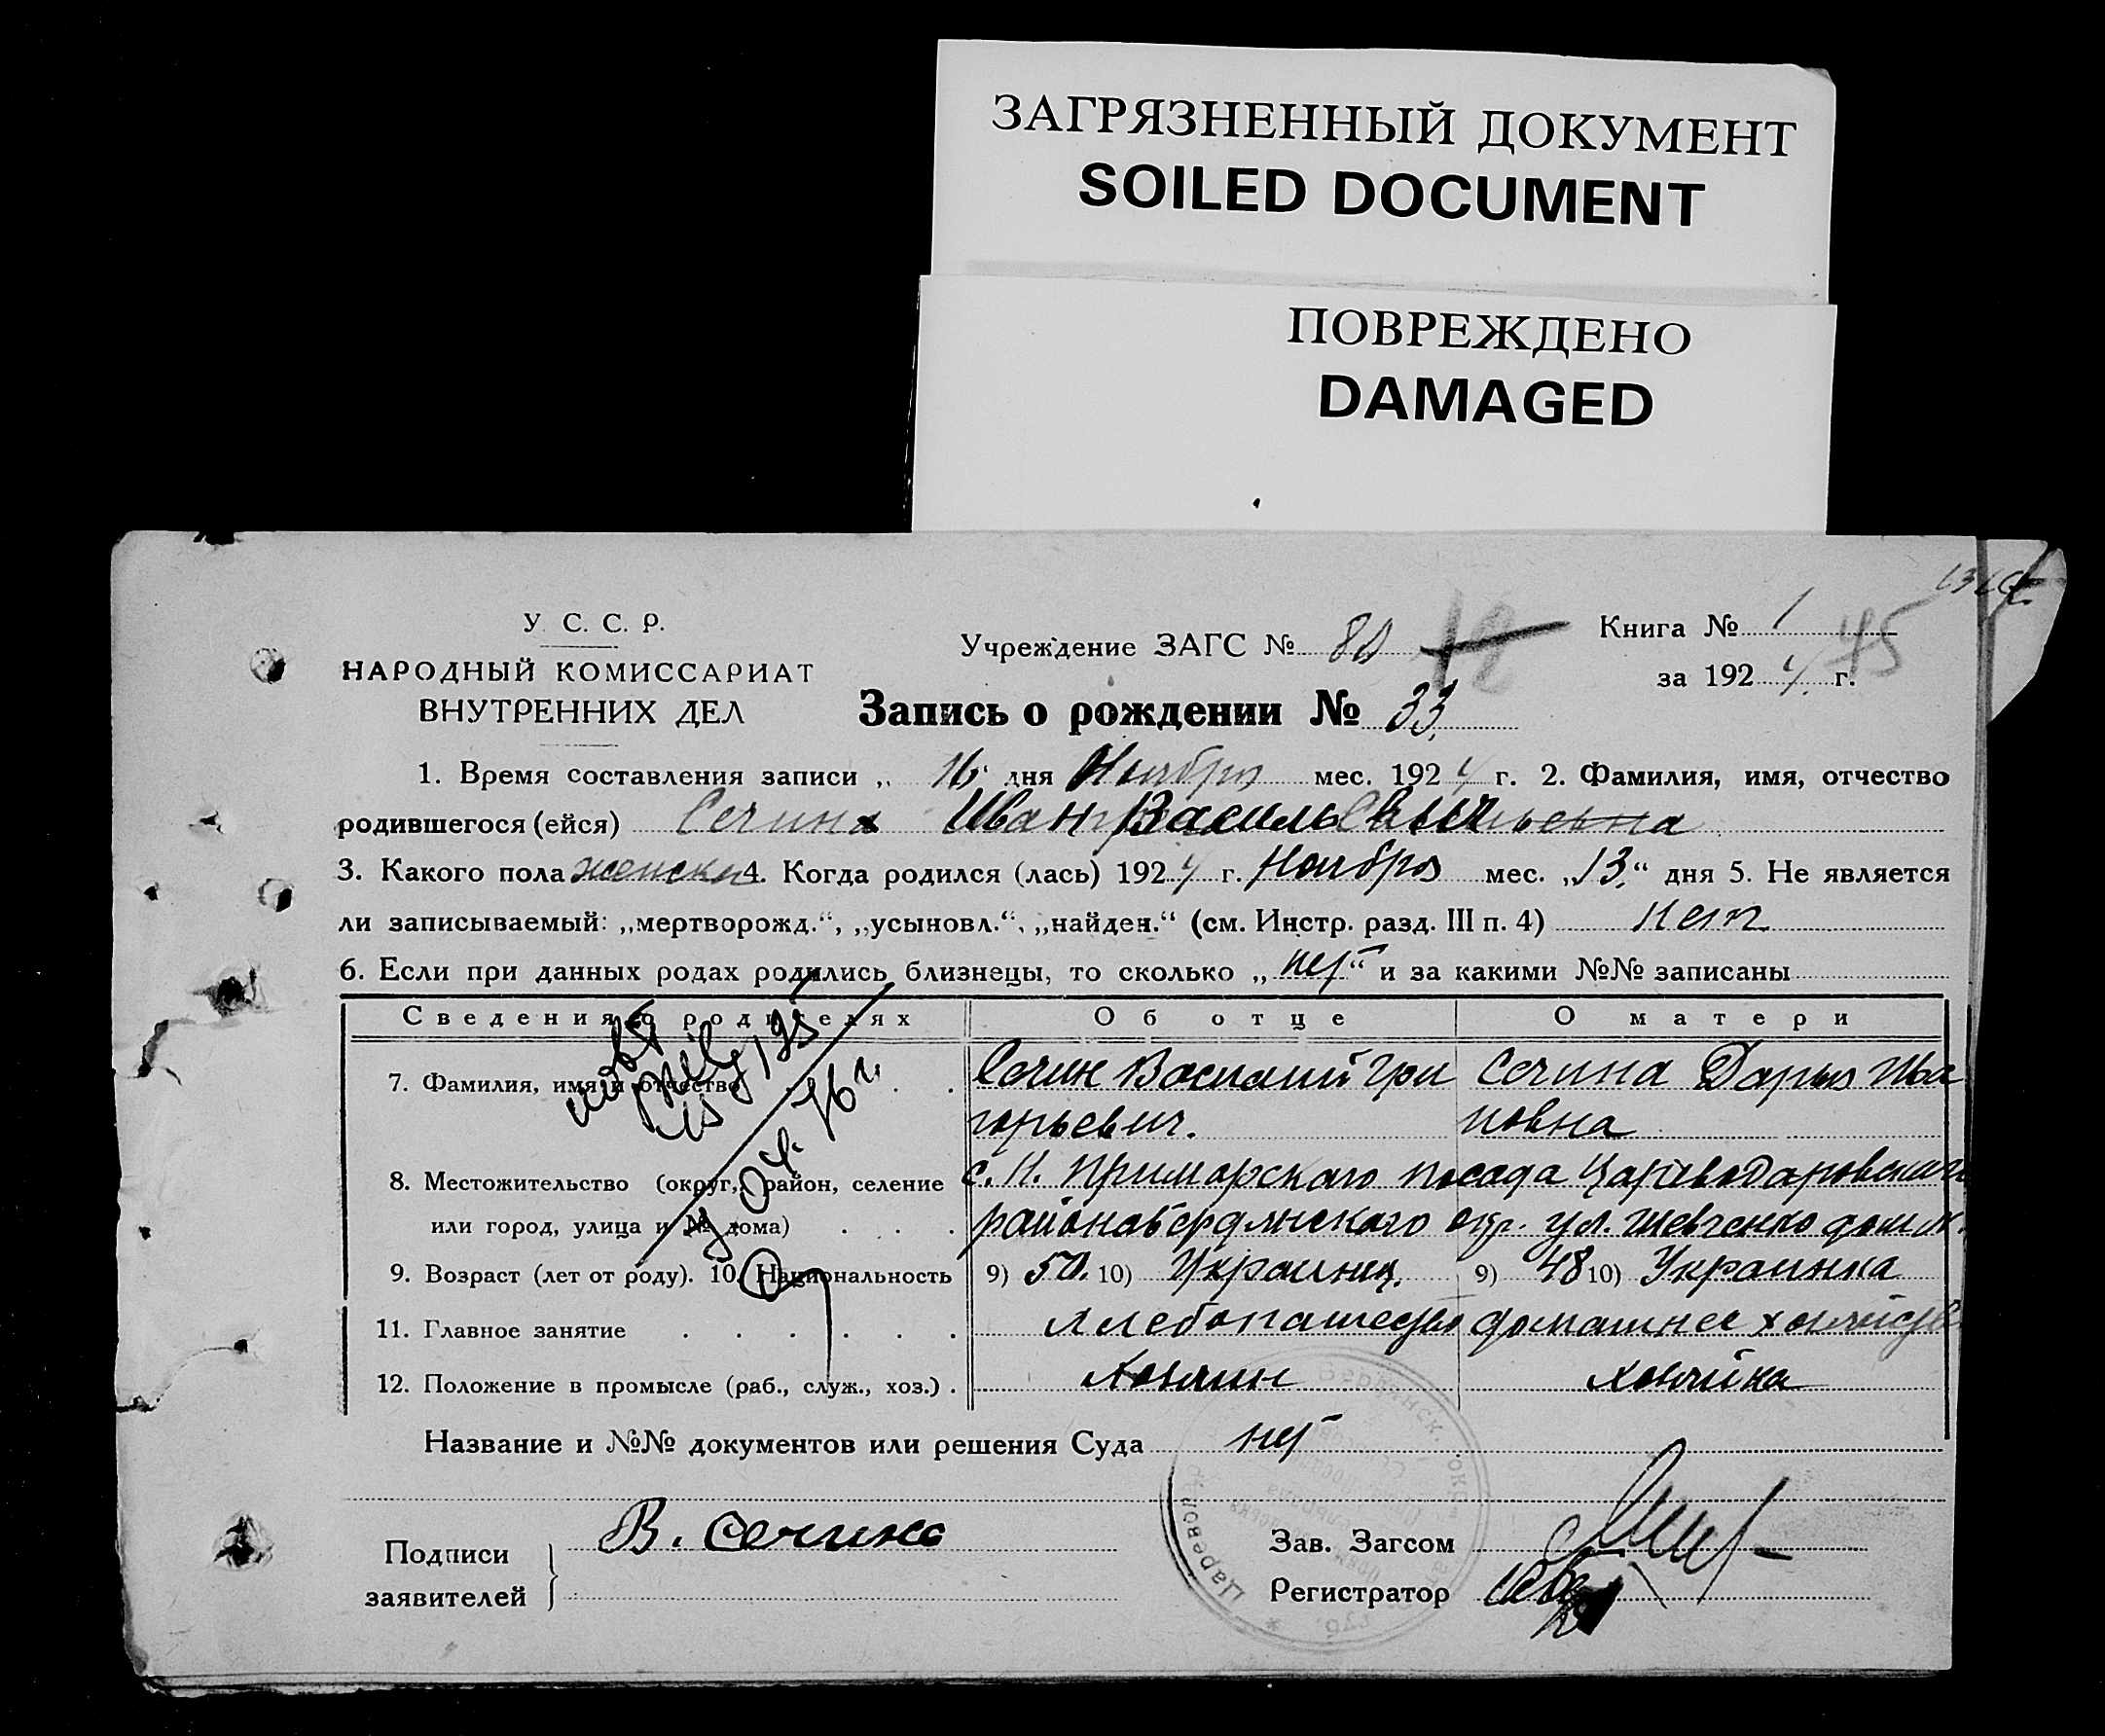 ЗАГРЯЗНЕННЫЙ ДОКУМЕНТ
SOILED DOCUMENT
ПОВРЕЖДЕНО
DAMAGED
У. С. С. Р.
НАРОДНЫЙ КОМИССАРИАТ
ВНУТРЕННИХ ДЕЛ
Учреждение ЗАГС № 80 12
Книга № 1 45
за 1924 г.
Запись о рождении № 33
1. Время составления записи „16“ дня Ноября мес. 1924 г. 2. Фамилия, имя, отчество
родившегося (ейся) Сечин Иван Васильевич
3. Какого пола женск 4. Когда родился (лась) 1924 г. Ноября мес. „13“ дня 5. Не является
ли записываемый: „мертворожд.“, „усыновл.“, „найден.“ (см. Инстр. разд. III п. 4) нет
6. Если при данных родах родились близнецы, то сколько „нет“ и за какими №№ записаны
Сведения о родителях Об отце О матери
7. Фамилия, имя и отчество Сечин Василий Гри Сечина Дарья Ива
горьевич. новна
8. Местожительство (округ, район, селение с. Н. Приморского посада Цареводаровского
или город, улица и № дома) района Бердянского окр. ул. Шевченко дом №
9. Возраст (лет от роду). 10. Национальность 9) 50. 10) Украинец. 9) 48 10) Украинка
11. Главное занятие Хлебопашество домашнее хозяйство
12. Положение в промысле (раб., служ., хоз.) Хозяин хозяйка
Название и №№ документов или решения Суда нет
Подписи
заявителей
В. Сечина
Зав. Загсом
Регистратор